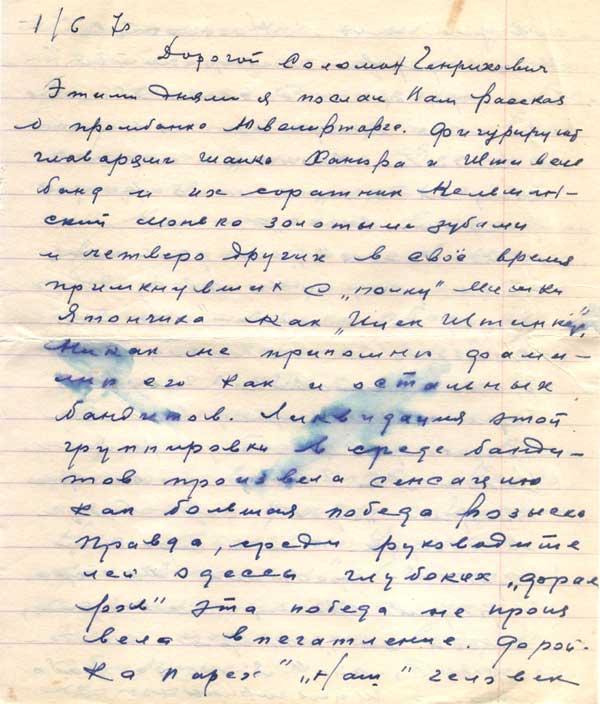 1/6 7
Дорогой Соломон Генрихович
Этими днями я послал Вам рассказ
о промбанке Ювелирторге. Фигурируют
главарями шайка и
банд и их соратник
ский монько золотыми зубами
и четверо других в своё время
примкнувших с „полку" Мишки
Япончика как „ Штинкер",
Никак не припомню фами-
лии его как и остальных
бандитов. Ликвидация этой
группировки в среде банди-
тов произвела сенсацию
как большая победа розыска
правда, среди руководите
лей одессы глубоких
эта победа не произ
вела впечатление.
ка парех" „Наш" человек